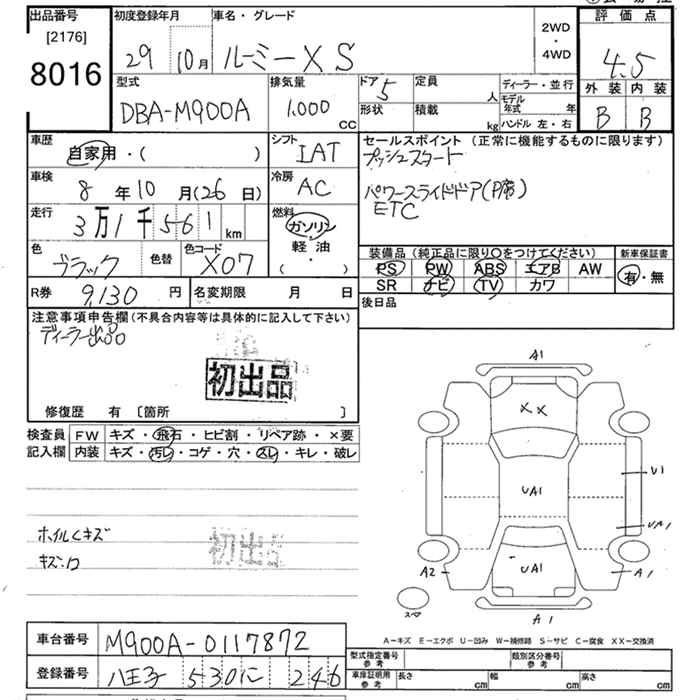 出品番号 初度登録年月 車名・グレード 2WD・4WD 評価点
[2176]
8016 29 10月 ルーミーXS 4.5
型式 排気量 ドア 5 定員 人 ディーラー・並行 外装 内装
DBA-M900A 1,000 cc 形状 積載 kg モデル年式 年 ハンドル 左・右 B B
車歴 自家用・( ) シフト IAT セールスポイント (正常に機能するものに限ります)
プッシュスタート
車検 8年10月(26日) 冷房 AC パワースライドドア(P席)
ETC
走行 3万1千561km 燃料 ガソリン 軽油・( )
色 ブラック 色替 色コード X07 装備品(純正品に限り○をつけてください) 新車保証書
PS PW ABS エアB AW 有・無
SR ナビ TV カワ
R券 9,130円 名変期限 月 日 後日品
注意事項申告欄(不具合内容等は具体的に記入して下さい)
ディーラー出品
初出品
修復歴 有 [箇所 ]
検査員 FW キズ・飛石・ヒビ割・リペア跡・×要
記入欄 内装 キズ・汚レ・コゲ・穴・スレ・キレ・破レ
A1
XX
UA1
U1
UA1
ホイルキズ
初出品
キズ:ロ
A2 UA1 A1
スペア A1
A-キズ E-エクボ U-凹み W-補修跡 S-サビ C-腐食 XX-交換済
車台番号 M900A-0117872 型式指定番号 参考 類別区分番号 参考
登録番号 八王子 530に 246 車庫証明用 参考 長さ cm 幅 cm 高さ cm